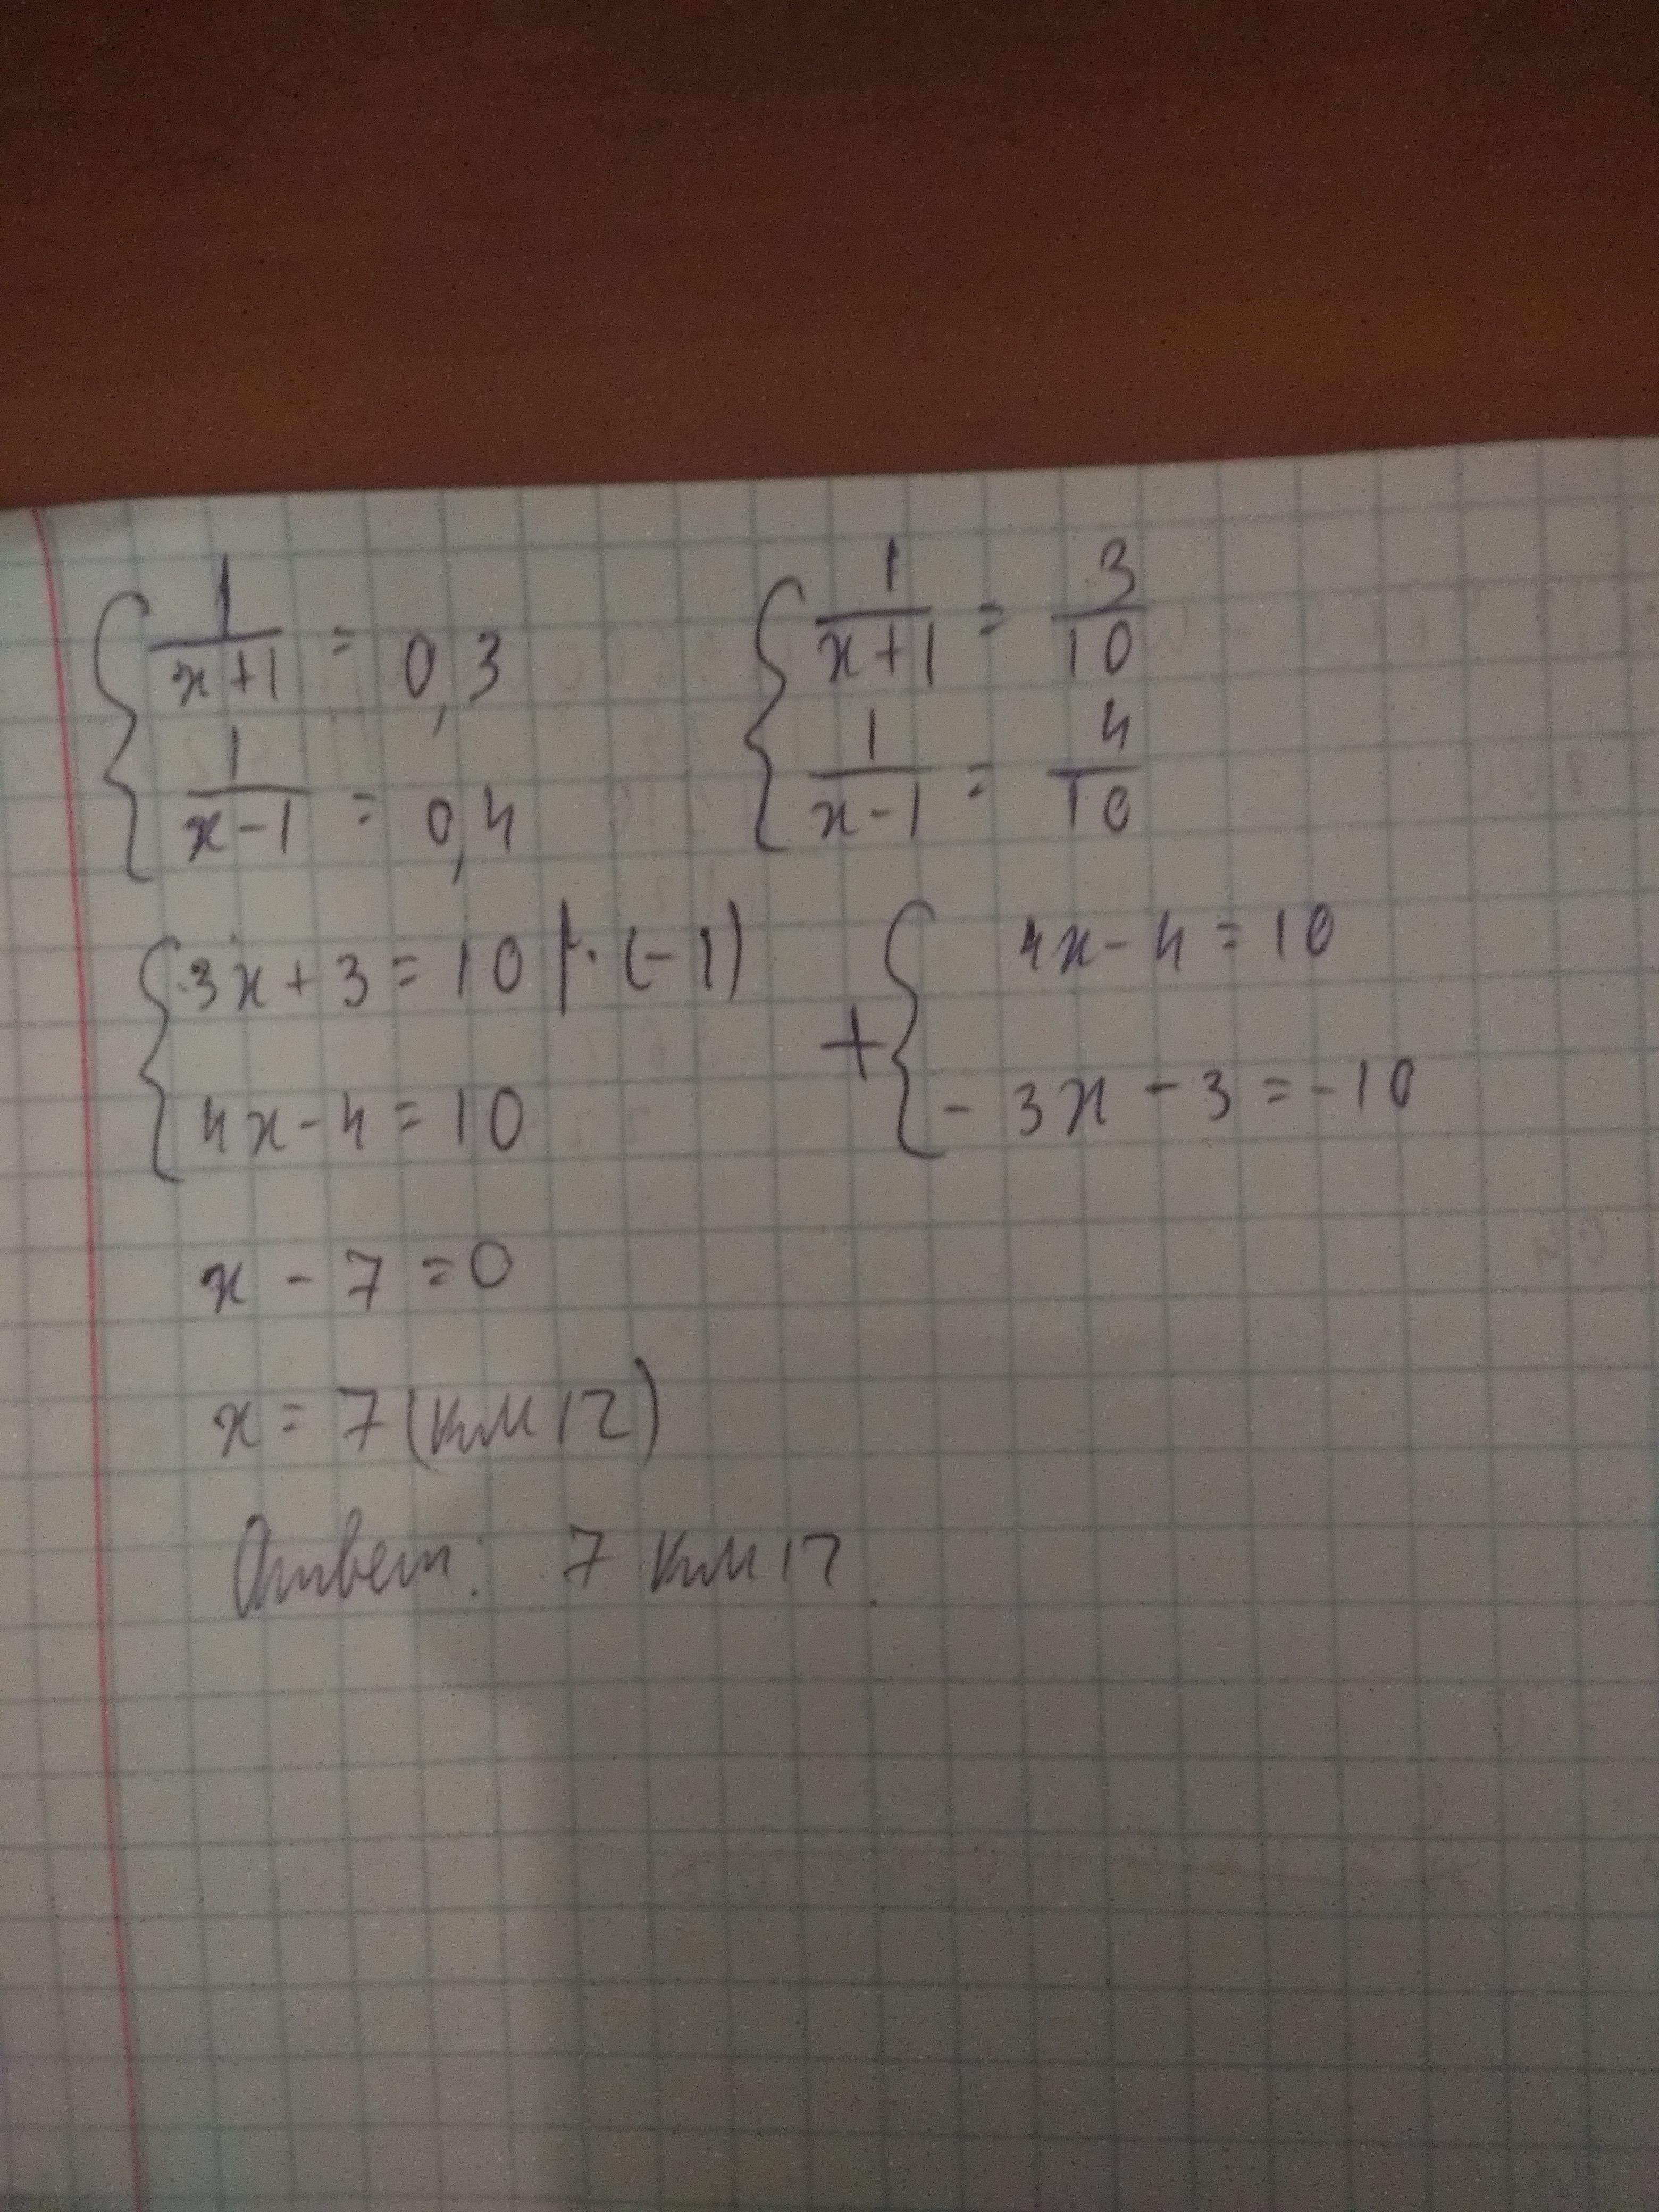 1/(x+1) = 0,3
1/(x-1) = 0,4
1/(x+1) = 3/10
1/(x-1) = 4/10
3x+3=10 |·(-1)
4x-4=10
+
4x-4=10
-3x-3=-10
x-7=0
x=7(км/2)
Ответ: 7 км/2.